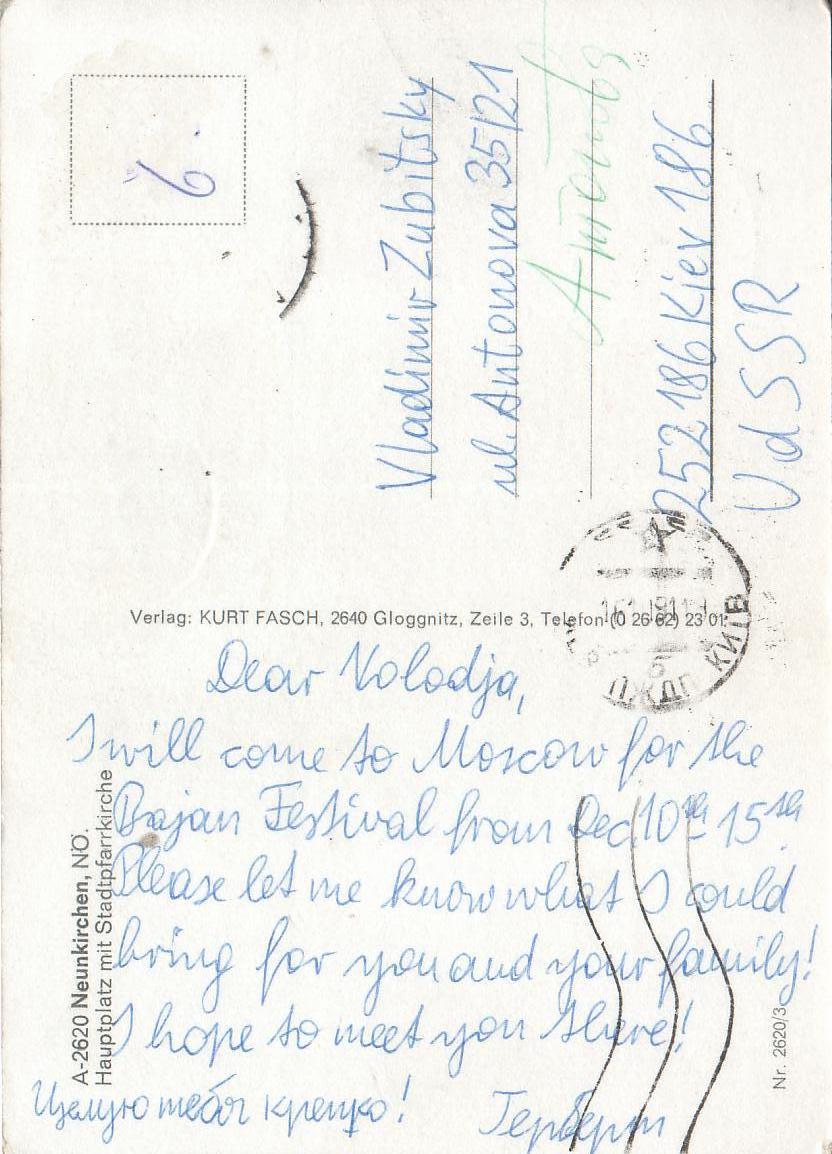 Dear Volodja,
I will come to Moscow for the
Bajan Festival from Dec. 10th - 15th.
Please let me know what I could
bring for you and your family!
I hope to meet you there!
Целую тебя крепко!
Герберт
Vladimir Zubitsky
ul. Antonova 35/21
Антонов
252186 Kiev 186
UdSSR
6.
Verlag: KURT FASCH, 2640 Gloggnitz, Zeile 3, Telefon (0 26 62) 23 01.
A-2620 Neunkirchen, NÖ.
Hauptplatz mit Stadtpfarrkirche
Nr. 2620/3
КИЇВ
ПЖДП